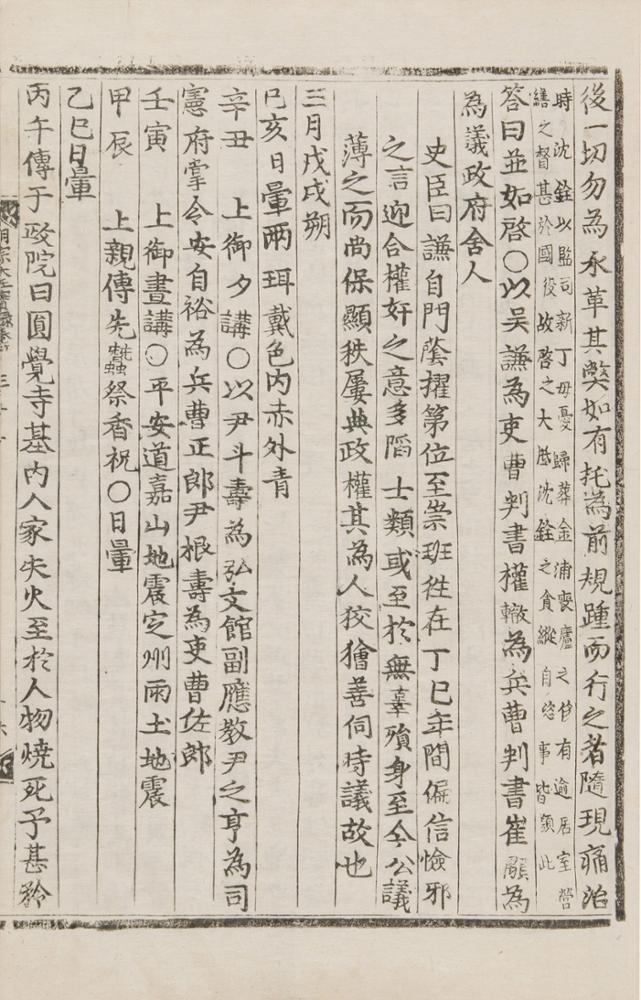 後一切勿為永革其弊如有托為前規踵而行之者隨現痛治
時沈銓以監司新丁母憂歸葬金浦喪廬之侈有逾居室營
繕之督甚於國役故啓之大槩沈銓之貪縱自恣事皆類此
答曰並如啓○以吳謙為吏曹判書權轍為兵曹判書崔顒為
為議政府舍人
史臣曰謙自門蔭擢第位至崇班徃在丁巳年間偏信憸邪
之言迎合權奸之意多陷士類或至於無辜殞身至今公議
薄之而尚保顯秩屢典政權其為人狡獪善伺時議故也
三月戊戌朔
己亥日暈兩珥戴色內赤外青
辛丑 上御夕講○以尹斗壽為弘文館副應教尹之亨為司
憲府掌令安自裕為兵曹正郎尹根壽為吏曹佐郎
壬寅 上御晝講○平安道嘉山地震定州雨土地震
甲辰 上親傳先蠶祭香祝○日暈
乙巳日暈
丙午傳于政院曰圓覺寺基內人家失火至於人物燒死予甚矜